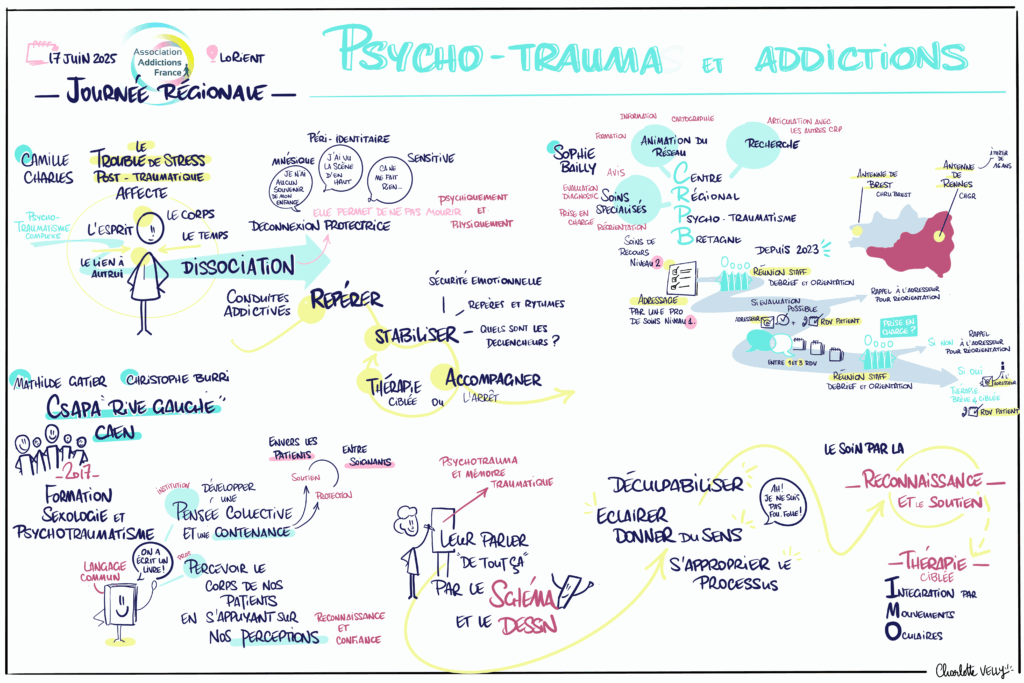 17 JUIN 2025
Association
Addictions
France
LORIENT
— JOURNÉE RÉGIONALE —
PSYCHO-TRAUMAS ET ADDICTIONS
CAMILLE
CHARLES
LE
TROUBLE DE STRESS
POST-TRAUMATIQUE
AFFECTE
PSYCHO-
TRAUMATISME
COMPLEXE
L'ESPRIT
LE CORPS
LE TEMPS
LE LIEN À
AUTRUI
DISSOCIATION
PÉRI-IDENTITAIRE
MNÉSIQUE
SENSITIVE
JE N'AI
AUCUN
SOUVENIR
DE MON
ENFANCE
J'AI VU
LA SCÈNE
D'EN
HAUT
ÇA NE
ME FAIT
RIEN...
ELLE PERMET DE NE PAS MOURIR
PSYCHIQUEMENT
ET
PHYSIQUEMENT
DÉCONNEXION PROTECTRICE
CONDUITES
ADDICTIVES
REPÉRER
STABILISER
SÉCURITÉ ÉMOTIONNELLE
REPÈRES ET RYTHMES
QUELS SONT LES
DECLENCHEURS ?
THÉRAPIE
CIBLÉE
OU
ACCOMPAGNER
L'ARRÊT
SOPHIE
BAILLY
FORMATION
INFORMATION
CARTOGRAPHIE
ANIMATION DU
RÉSEAU
ARTICULATION AVEC
LES AUTRES CRP
RECHERCHE
AVIS
EVALUATION
DIAGNOSTIC
PRISE EN
CHARGE
RÉORIENTATION
SOINS
SPÉCIALISÉS
SOINS DE
RECOURS
NIVEAU 2
CENTRE
RÉGIONAL
PSYCHO-TRAUMATISME
BRETAGNE
DEPUIS 2023
ANTENNE DE
BREST
CHRU BREST
ANTENNE
DE
RENNES
CHGR
À PARTIR
DE 16 ANS
ADRESSAGE
PAR UN PRO
DE SOINS NIVEAU 1.
RÉUNION STAFF
DEBRIEF ET ORIENTATION
RAPPEL À L'ADRESSEUR
POUR REORIENTATION
SI EVALUATION
POSSIBLE
ADRESSEUR
+ RDV PATIENT
ENTRE 1 ET 3 RDV
PRISE EN
CHARGE ?
RÉUNION STAFF
DEBRIEF ET ORIENTATION
SI NON
RAPPEL
À L'ADRESSEUR
POUR REORIENTATION
SI OUI
THÉRAPIE
BRÈVE & CIBLÉE
ADRESSEUR
RDV PATIENT
MATHILDE GATIER
CHRISTOPHE BURRI
CSAPA "RIVE GAUCHE"
CAEN
- 2017 -
FORMATION
SEXOLOGIE ET
PSYCHOTRAUMATISME
INSTITUTION
DÉVELOPPER
UNE
PENSÉE COLLECTIVE
ET UNE CONTENANCE
ENVERS LES
PATIENTS
ENTRE
SOIGNANTS
SOUTIEN
PROTECTION
LANGAGE
COMMUN
ON A
ÉCRIT UN
LIVRE!
PERCEVOIR LE
CORPS DE NOS
PATIENTS
EN S'APPUYANT SUR
NOS PERCEPTIONS
RECONNAISSANCE
ET
CONFIANCE
PSYCHOTRAUMA
ET MÉMOIRE
TRAUMATIQUE
LEUR PARLER
"DE TOUT ÇA"
PAR LE SCHÉMA
ET LE DESSIN
DÉCULPABILISER
ECLAIRER
DONNER DU SENS
S'APPROPRIER LE
PROCESSUS
AH!
JE NE SUIS
PAS
FOU.FOLLE!
LE SOIN PAR LA
— RECONNAISSANCE —
ET LE SOUTIEN
— THÉRAPIE —
CIBLÉE
INTEGRATION PAR
MOUVEMENTS
OCULAIRES
Charlotte VELLY